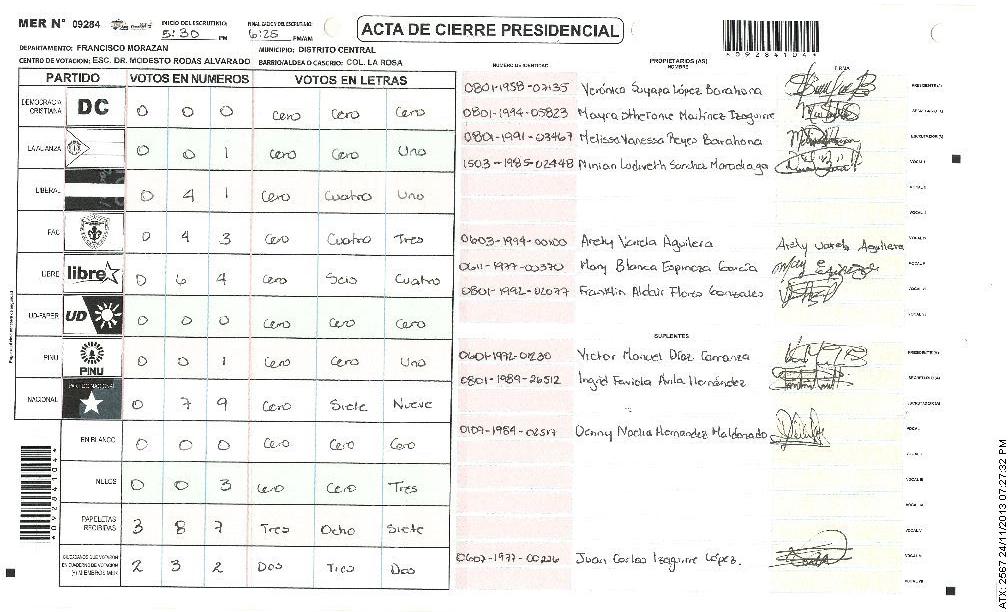 MER N° 09284 INICIO DEL ESCRUTINIO: 5:30 PM FINALIZACION DEL ESCRUTINIO: 6:25 PM/AM ACTA DE CIERRE PRESIDENCIAL
*092841041*
DEPARTAMENTO: FRANCISCO MORAZAN MUNICIPIO: DISTRITO CENTRAL
CENTRO DE VOTACION: ESC. DR. MODESTO RODAS ALVARADO BARRIO/ALDEA O CASERIO: COL. LA ROSA
PARTIDO VOTOS EN NUMEROS VOTOS EN LETRAS
DEMOCRACIA CRISTIANA DC 0 0 0 Cero Cero Cero
LA ALIANZA 0 0 1 Cero Cero Uno
LIBERAL 0 4 1 Cero Cuatro Uno
FAC 0 4 3 Cero Cuatro Tres
LIBRE libre 0 6 4 Cero Seis Cuatro
UD-FAPER UD 0 0 0 Cero Cero Cero
PINU PINU 0 0 1 Cero Cero Uno
NACIONAL 0 7 9 Cero Siete Nueve
EN BLANCO 0 0 0 Cero Cero Cero
NULOS 0 0 3 Cero Cero Tres
PAPELETAS RECIBIDAS 3 8 7 Tres Ocho Siete
CIUDADANOS QUE VOTARON EN CUADERNO DE VOTACION (+) MIEMBROS MER 2 3 2 Dos Tres Dos
NUMERO DE IDENTIDAD PROPIETARIOS (AS) NOMBRE FIRMA
0801-1958-07135 Verónica Suyapa López Barahona PRESIDENTE(A)
0801-1994-05823 Mayra Sthefanie Martínez Izaguirre SECRETARIO(A)
0801-1991-03467 Melissa Vanessa Reyes Barahona ESCRUTADOR(A)
1503-1985-02448 VOCAL I
VOCAL II
VOCAL III
0603-1994-00100 Arely Varela Aguilera Arely Varela Aguilera VOCAL IV
0611-1977-00370 Mary Blanca Espinoza García VOCAL V
0801-1992-02077 Franklin Aldair Flores Gonzales VOCAL VI
VOCAL VII
SUPLENTES
0601-1972-01230 Victor Manuel Díaz Carranza PRESIDENTE(A)
0801-1989-26512 Ingrid Faviola Avila Hernández SECRETARIO(A)
ESCRUTADOR(A)
Denny Noelia Hernandez Maldonado VOCAL I
VOCAL II
VOCAL III
VOCAL IV
VOCAL V
0607-1977-00226 Juan Carlos Izaguirre López. VOCAL VI
VOCAL VII
*092841041*
ATX: 2567 24/11/2013 07:27:32 PM